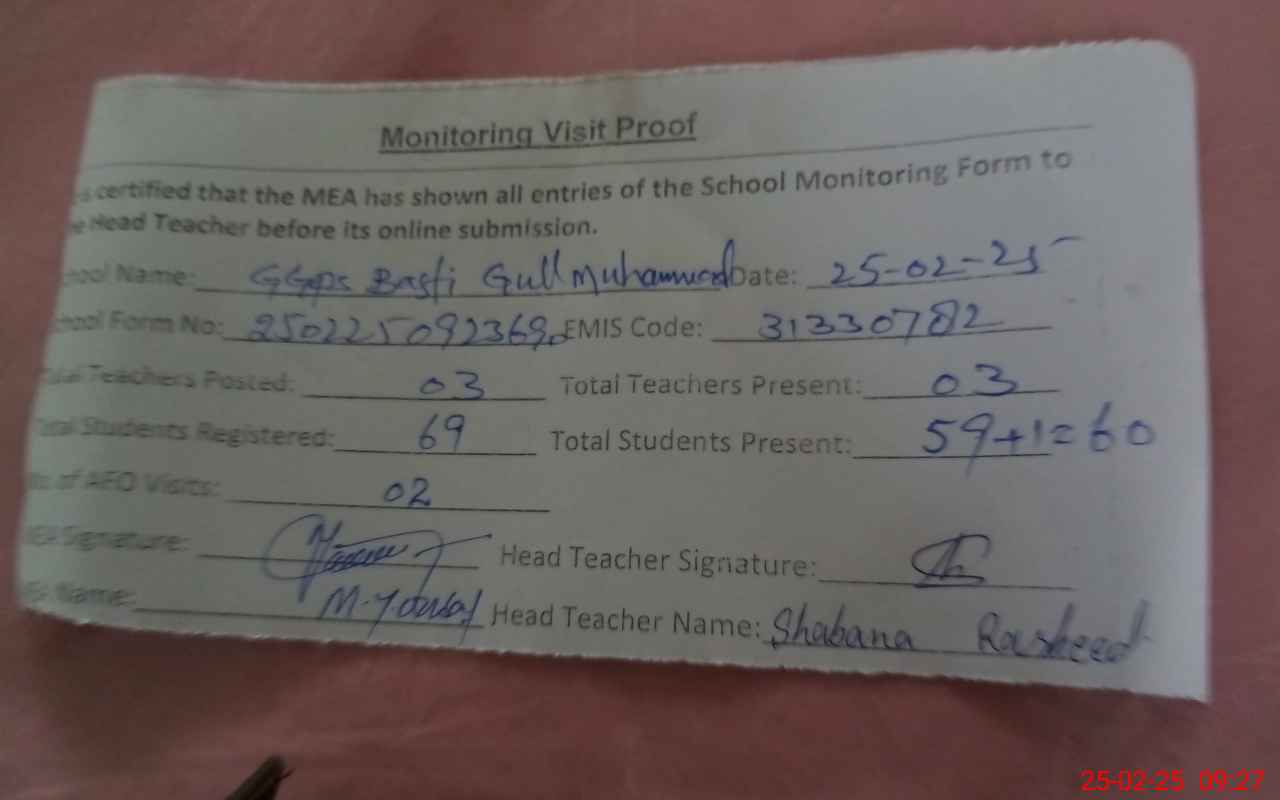 Monitoring Visit Proof
certified that the MEA has shown all entries of the School Monitoring Form to
Head Teacher before its online submission.
hool Name: GGPS Basti Gull Muhammad Date: 25-02-25
hool Form No: EMIS Code: 31330782
Total Teachers Posted: 03 Total Teachers Present: 03
Total Students Registered: 69 Total Students Present: 59+1=60
of AEO Visits: 02
MEA Signature: Head Teacher Signature:
Name: M. Yousaf Head Teacher Name: Shabana Rasheed
25-02-25 09:27